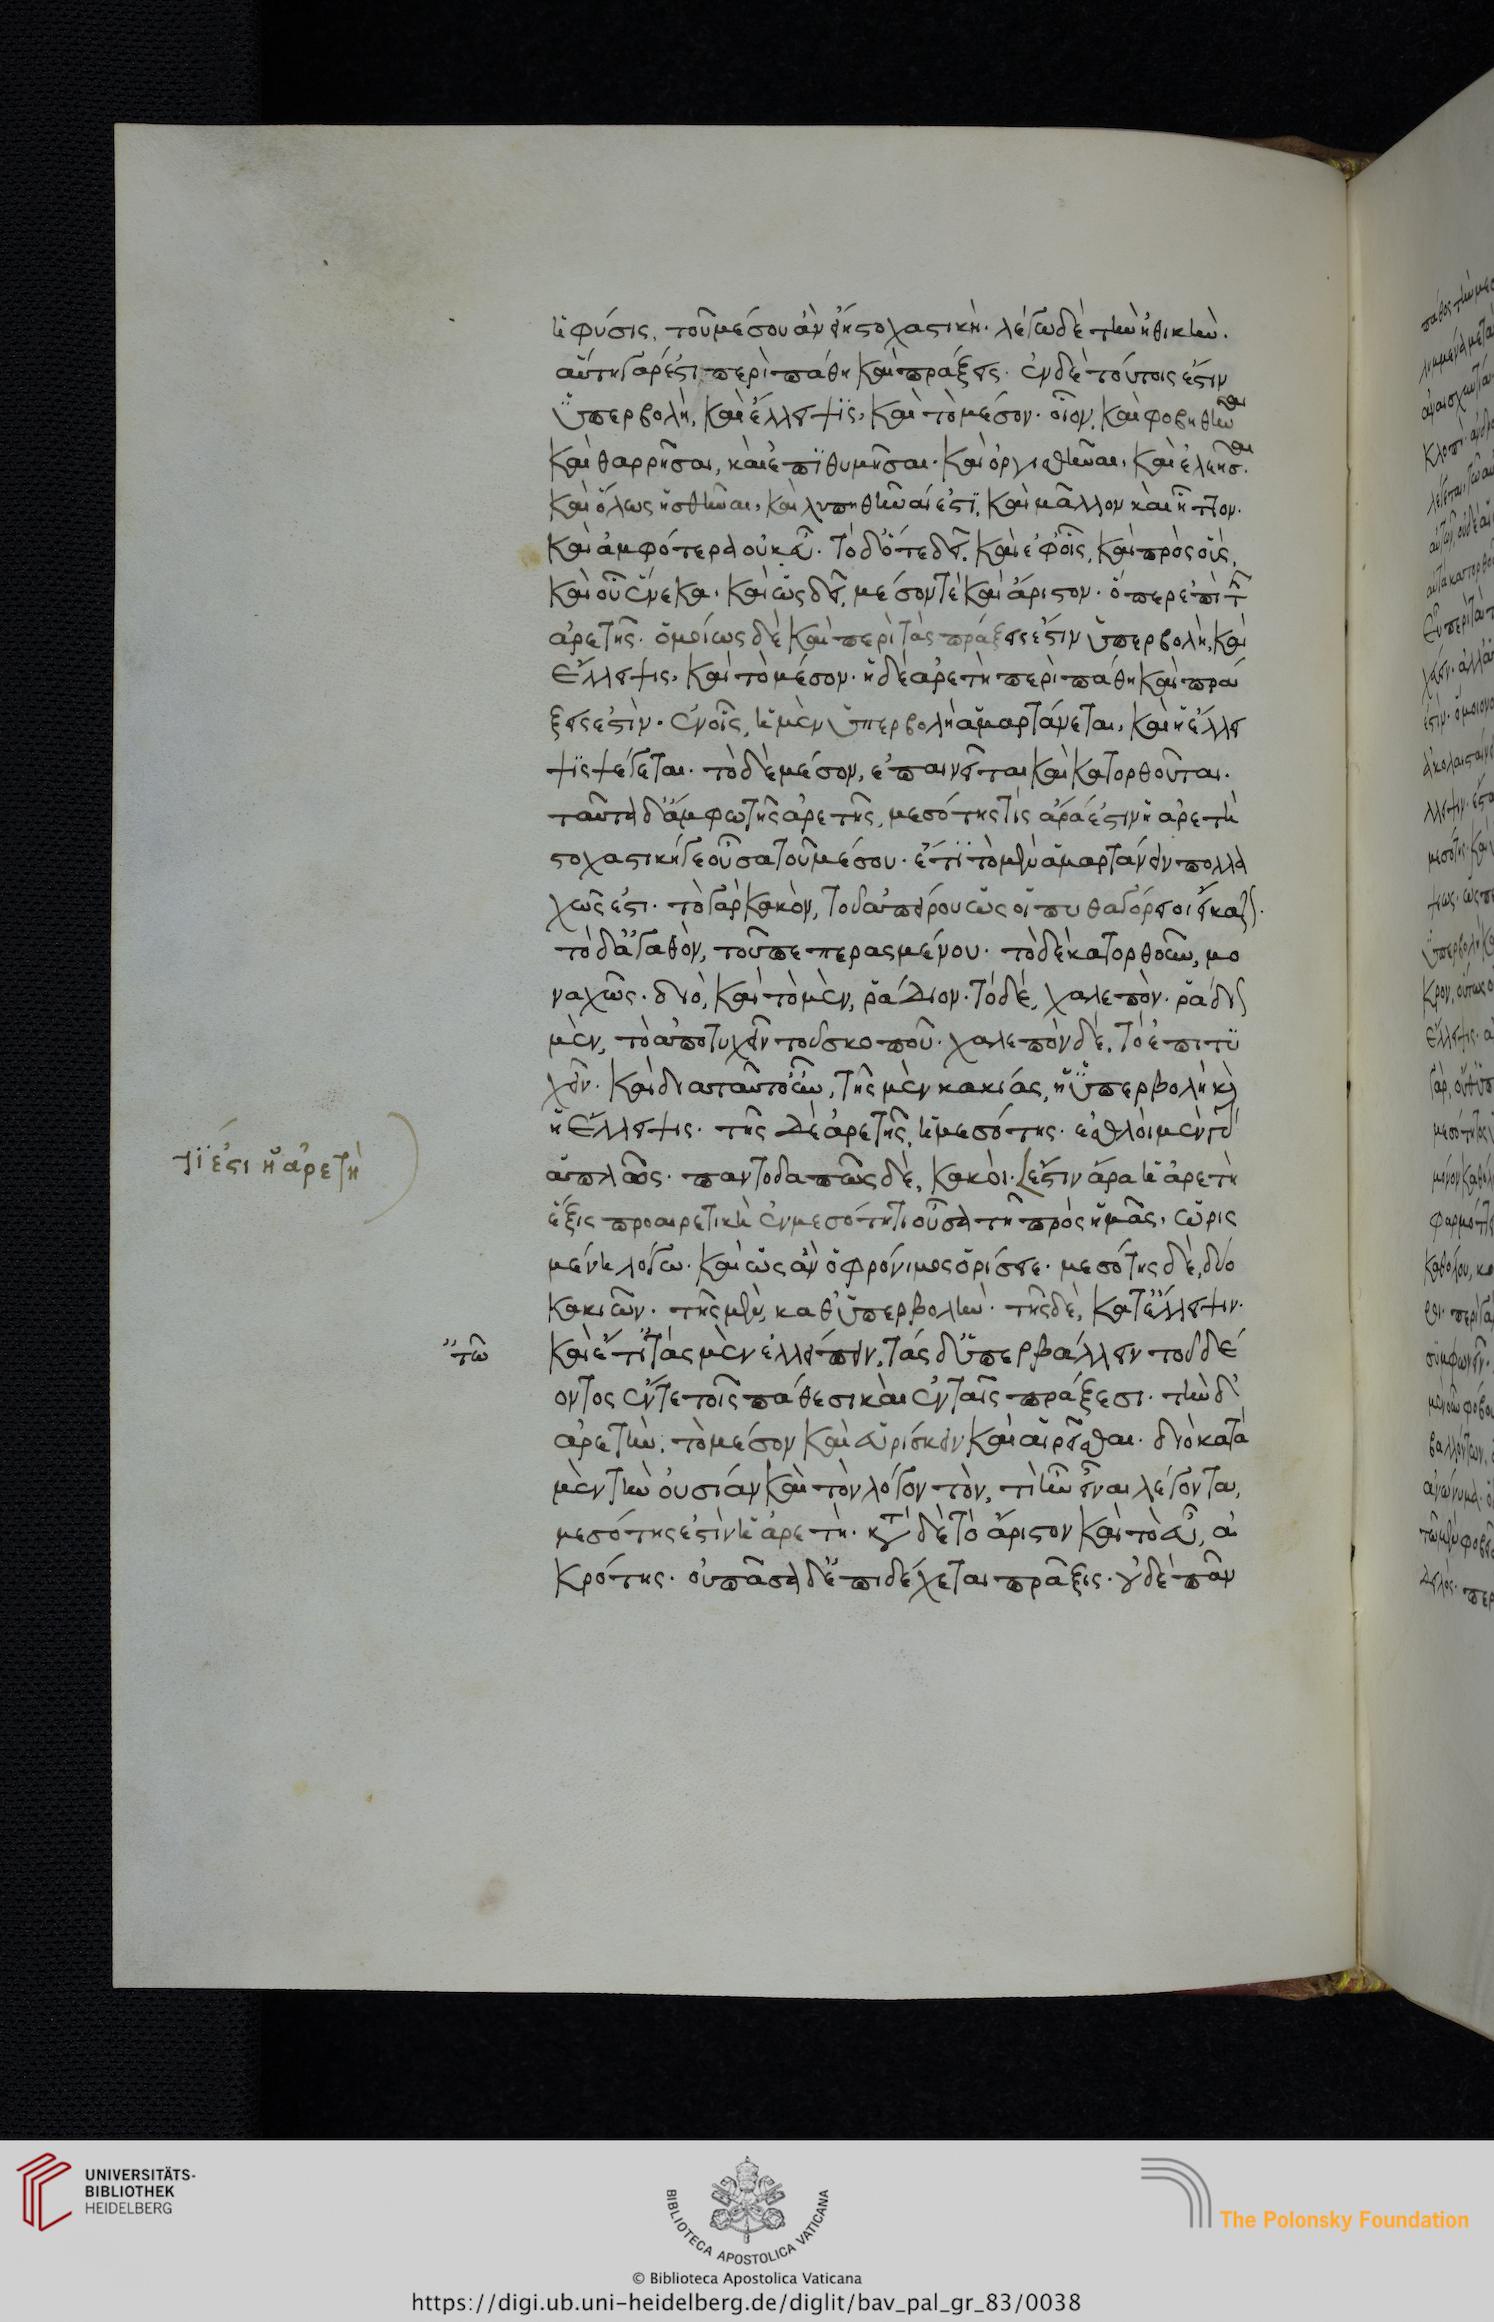 ἡ φύσις, τοῦ μέσου ἂν εἴη στοχαστική. λέγω δὲ τὴν ἠθικήν.
αὕτη γάρ ἐστι περὶ πάθη καὶ πράξεις. ἐν δὲ τούτοις ἐστὶν
ὑπερβολὴ, καὶ ἔλλειψις, καὶ τὸ μέσον. οἷον, καὶ φοβηθῆναι
καὶ θαρρῆσαι, καὶ ἐπιθυμῆσαι. καὶ ὀργισθῆναι, καὶ ἐλεῆσαι.
καὶ ὅλως ἡσθῆναι, καὶ λυπηθῆναί ἐστι, καὶ μᾶλλον καὶ ἧττον.
καὶ ἀμφότερα οὐκ εὖ. τὸ δ' ὅτε δεῖ, καὶ ἐφ' οἷς, καὶ πρὸς οὓς,
καὶ οὗ ἕνεκα, καὶ ὡς δεῖ, μέσον τὲ καὶ ἄριστον. ὅπερ ἐστὶ τῆς
ἀρετῆς. ὁμοίως δὲ καὶ περὶ τὰς πράξεις ἐστὶν ὑπερβολὴ, καὶ
ἔλλειψις, καὶ τὸ μέσον. ἡ δὲ ἀρετὴ περὶ πάθη καὶ πρά
ξεις ἐστὶν. ἐν οἷς, ἡ μὲν ὑπερβολὴ ἁμαρτάνεται, καὶ ἡ ἔλλει
ψις ψέγεται. τὸ δὲ μέσον, ἐπαινεῖται καὶ κατορθοῦται.
ταῦτα δ' ἄμφω τῆς ἀρετῆς, μεσότης τὶς ἄρα ἐστὶν ἡ ἀρετὴ
στοχαστική γε οὖσα τοῦ μέσου. ἔτι τὸ μὲν ἁμαρτάνειν πολλα
χῶς ἐστι. τὸ γὰρ κακὸν, τοῦ ἀπείρου ὡς οἱ πυθαγόρειοι εἴκαζον.
τὸ δ' ἀγαθὸν, τοῦ πεπερασμένου. τὸ δὲ κατορθοῦν, μο
ναχῶς. διὸ, καὶ τὸ μὲν, ῥάδιον. τὸ δὲ, χαλεπὸν. ῥάδιον
μὲν, τὸ ἀποτυχεῖν τοῦ σκοποῦ. χαλεπὸν δὲ, τὸ ἐπιτυ
χεῖν. καὶ διὰ ταῦτ' οὖν, τῆς μὲν κακίας, ἡ ὑπερβολὴ καὶ
ἡ ἔλλειψις. τῆς δὲ ἀρετῆς, ἡ μεσότης. ἐσθλοὶ μὲν γὰρ
ἁπλῶς. παντοδαπῶς δὲ, κακοί. ἔστιν ἄρα ἡ ἀρετὴ
τί ἐστι ἡ ἀρετὴ
ἕξις προαιρετικὴ ἐν μεσότητι οὖσα τῆ πρὸς ἡμᾶς, ὡρισ
μένη λόγω. καὶ ὡς ἂν ὁ φρόνιμος ὁρίσειε. μεσότης δὲ, δύο
κακιῶν. τῆς μὲν, καθ' ὑπερβολὴν. τῆς δὲ, κατ' ἔλλειψιν.
τῶ
καὶ ἔτι τὰς μὲν ἐλλείπειν, τὰς δ' ὑπερβάλλειν τοῦ δέ
οντος ἔν τε τοῖς πάθεσι καὶ ἐν ταῖς πράξεσι. τὴν δ'
ἀρετὴν, τὸ μέσον καὶ εὑρίσκειν καὶ αἱρεῖσθαι. διὸ κατὰ
μὲν τὴν οὐσίαν καὶ τὸν λόγον τὸν, τὶ ἦν εἶναι λέγοντα,
μεσότης ἐστὶν ἡ ἀρετὴ. κατὰ δὲ τὸ ἄριστον καὶ τὸ εὖ, ἀ
κρότης. οὐ πᾶσα δ' ἐπιδέχεται πρᾶξις. οὐδὲ πᾶν
UNIVERSITÄTS-
BIBLIOTHEK
HEIDELBERG
BIBLIOTECA APOSTOLICA VATICANA
The Polonsky Foundation
© Biblioteca Apostolica Vaticana
https://digi.ub.uni-heidelberg.de/diglit/bav_pal_gr_83/0038